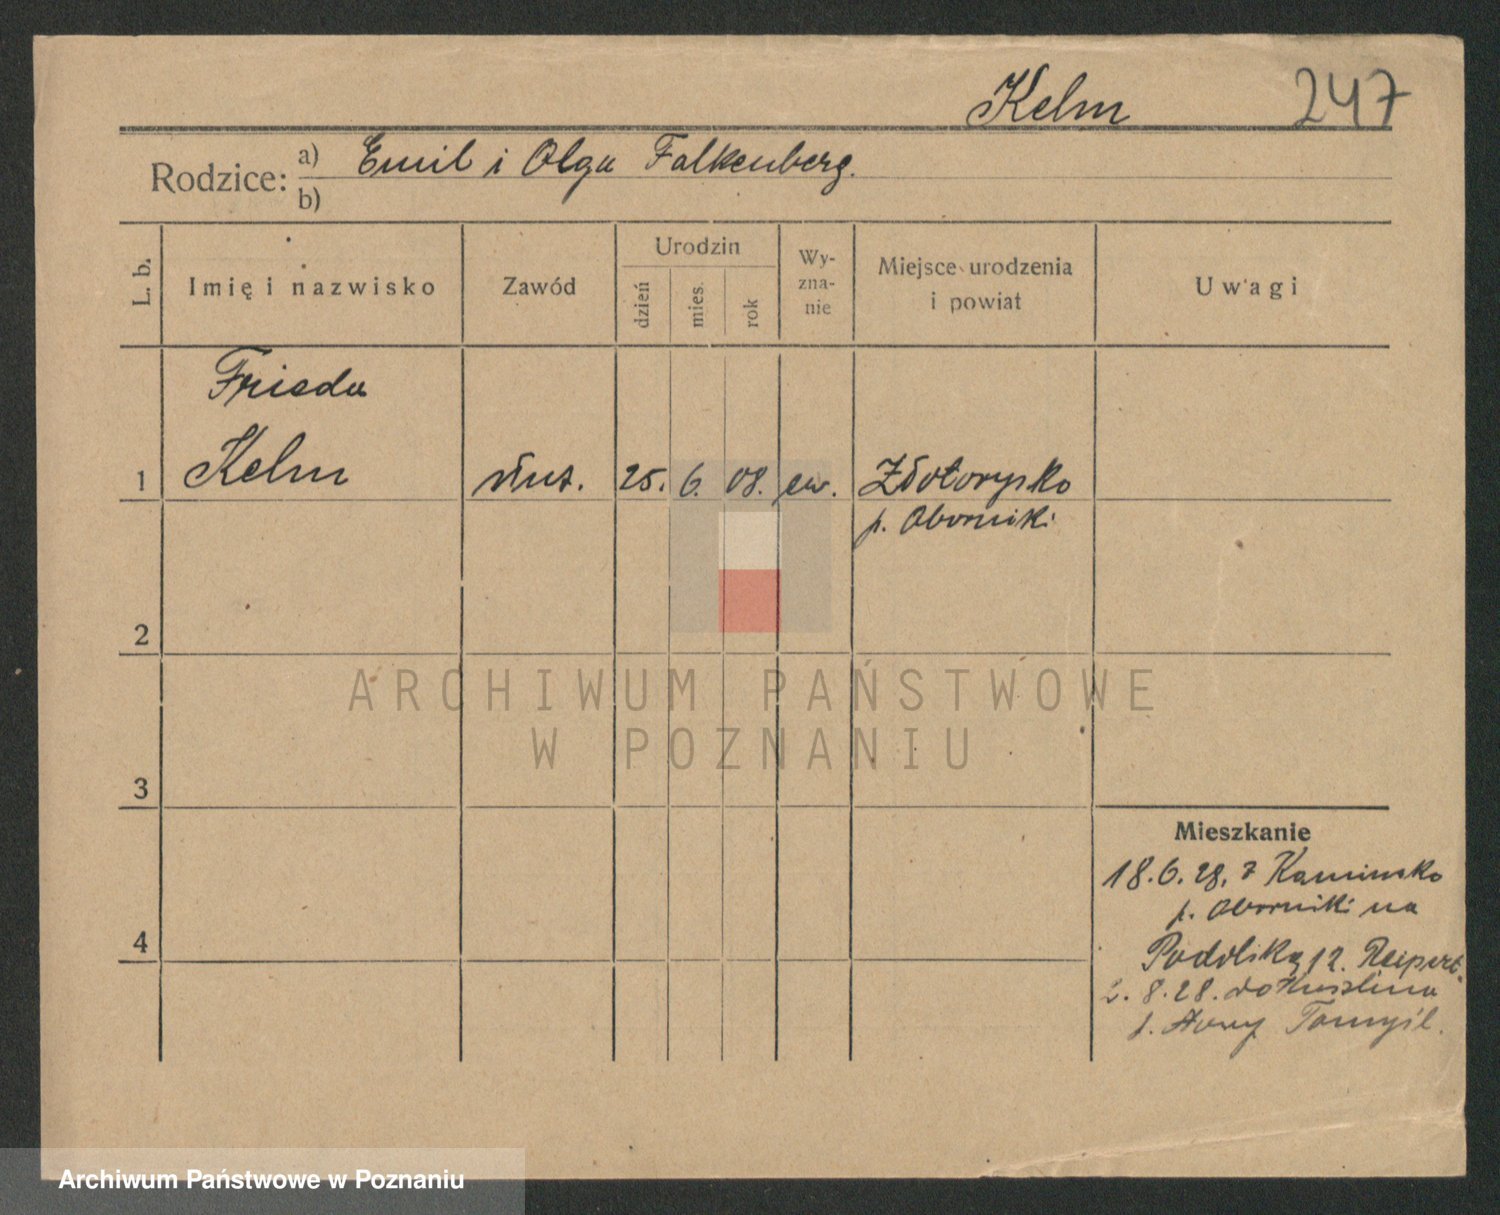 Kelm 247
Rodzice: a) Emil i Olga Falkenberg.
b)
L. b.
Imię i nazwisko
Zawód
Urodzin
dzień
mies.
rok
Wy-
zna-
nie
Miejsce urodzenia
i powiat
Uwagi
Frieda
1 Kelm służ. 25. 6. 08. ew. Złotorysko
p. Oborniki
2
3
4
ARCHIWUM PAŃSTWOWE
W POZNANIU
Mieszkanie
18.6.28. z Kaminsko
p. Oborniki na
12. Reipert.
2. 8.28. do
p. Nowy Tomyśl.
Archiwum Państwowe w Poznaniu